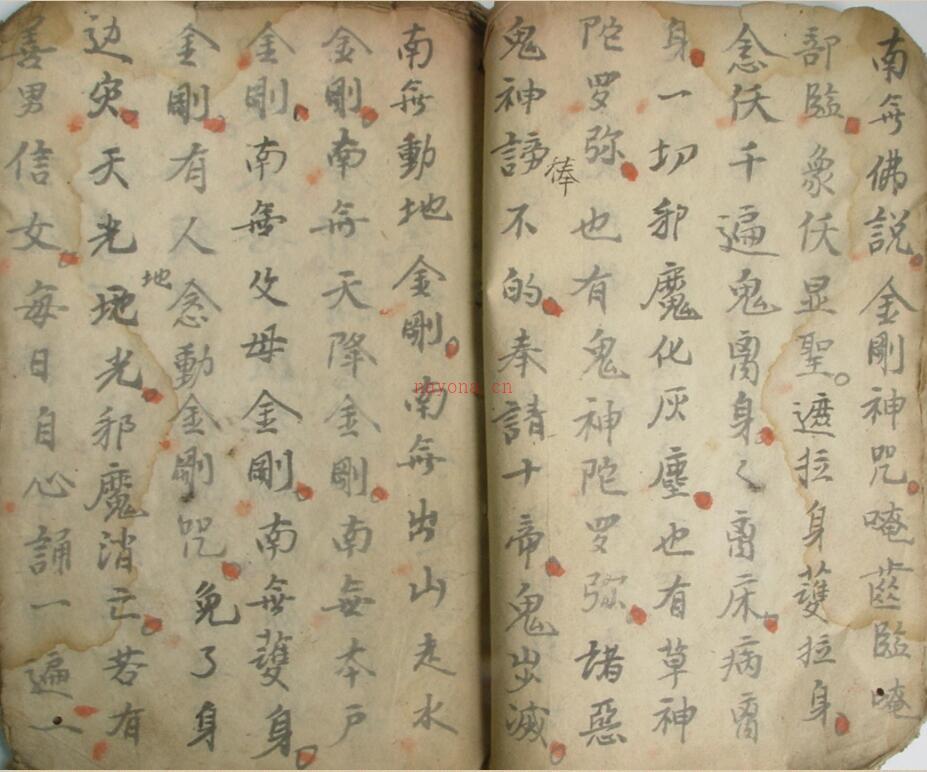 南無佛說。金剛神咒。唵齒臨唵
部臨。眾仸显聖。遮拉身護拉身。
念仸千遍鬼离身。〻离床。病离
身。一切邪魔化灰塵。也有草神
陀罗弥。也有鬼神陀罗弥。諸惡
鬼神諦不的。奉請十帝。鬼出滅。
俸
南無動地金剛。南無出山走水
金剛。南無天降金剛。南無本戸
金剛。南無父母金剛。南無護身。
金剛。有人念動金剛咒。免了身
地
边突。天光地光。邪魔消亡。若有
善男信女。每日自心誦一遍一
nayona.cn